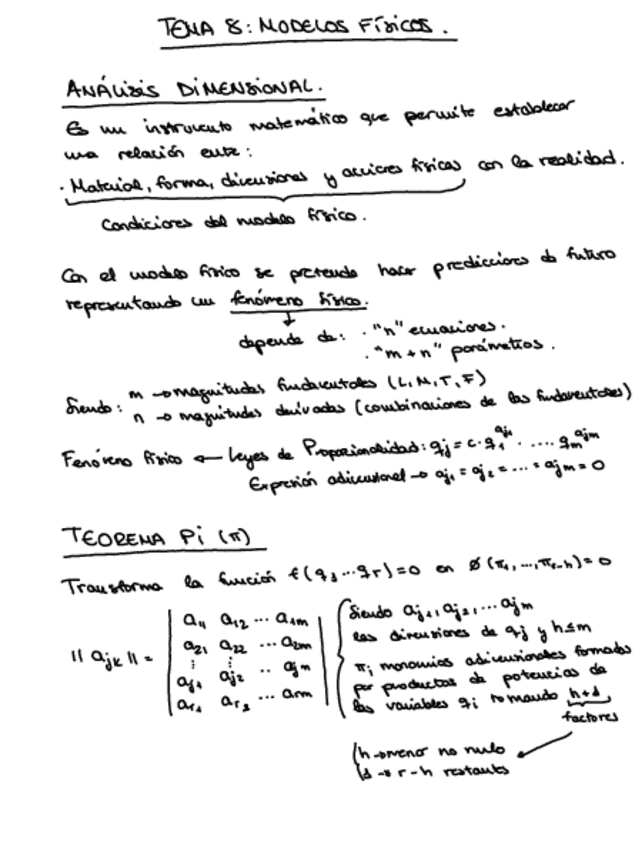 TEMA 8: MODELOS FÍSICOS.
ANÁLISIS DIMENSIONAL.
Es un instrumento matemático que permite establecer
una relación entre:
· Material, forma, dimensiones y acciones físicas con la realidad.
Condiciones del modelo físico.
Con el modelo físico se pretende hacer predicciones de futuro
representando un fenómeno físico.
depende de: · "n" ecuaciones.
· "m + n" parámetros.
Siendo: m → magnitudes fundamentales (L, M, T, F)
n → magnitudes derivadas (combinaciones de las fundamentales)
Fenómeno físico ← Leyes de Proporcionalidad: qj = c · q1^aj1 · .... qm^ajm
Expresión adimensional → aj1 = aj2 = ... = ajm = 0
TEOREMA Pi (π)
Transforma la función f(q1 ... qr) = 0 en Ø(π1, ..., πr-h) = 0
|| ajk || = | a11 a12 ... a1m | Siendo aj1, aj2, ... ajm
| a21 a22 ... a2m | las dimensiones de qj y h≤m
| aj1 aj2 .. ajm | πi monomios adimensionales formados
| ar1 ar2 ... arm | por productos de potencias de
las variables qi tomando h+1
factores
h → menor no nulo
1 → r-h restantes